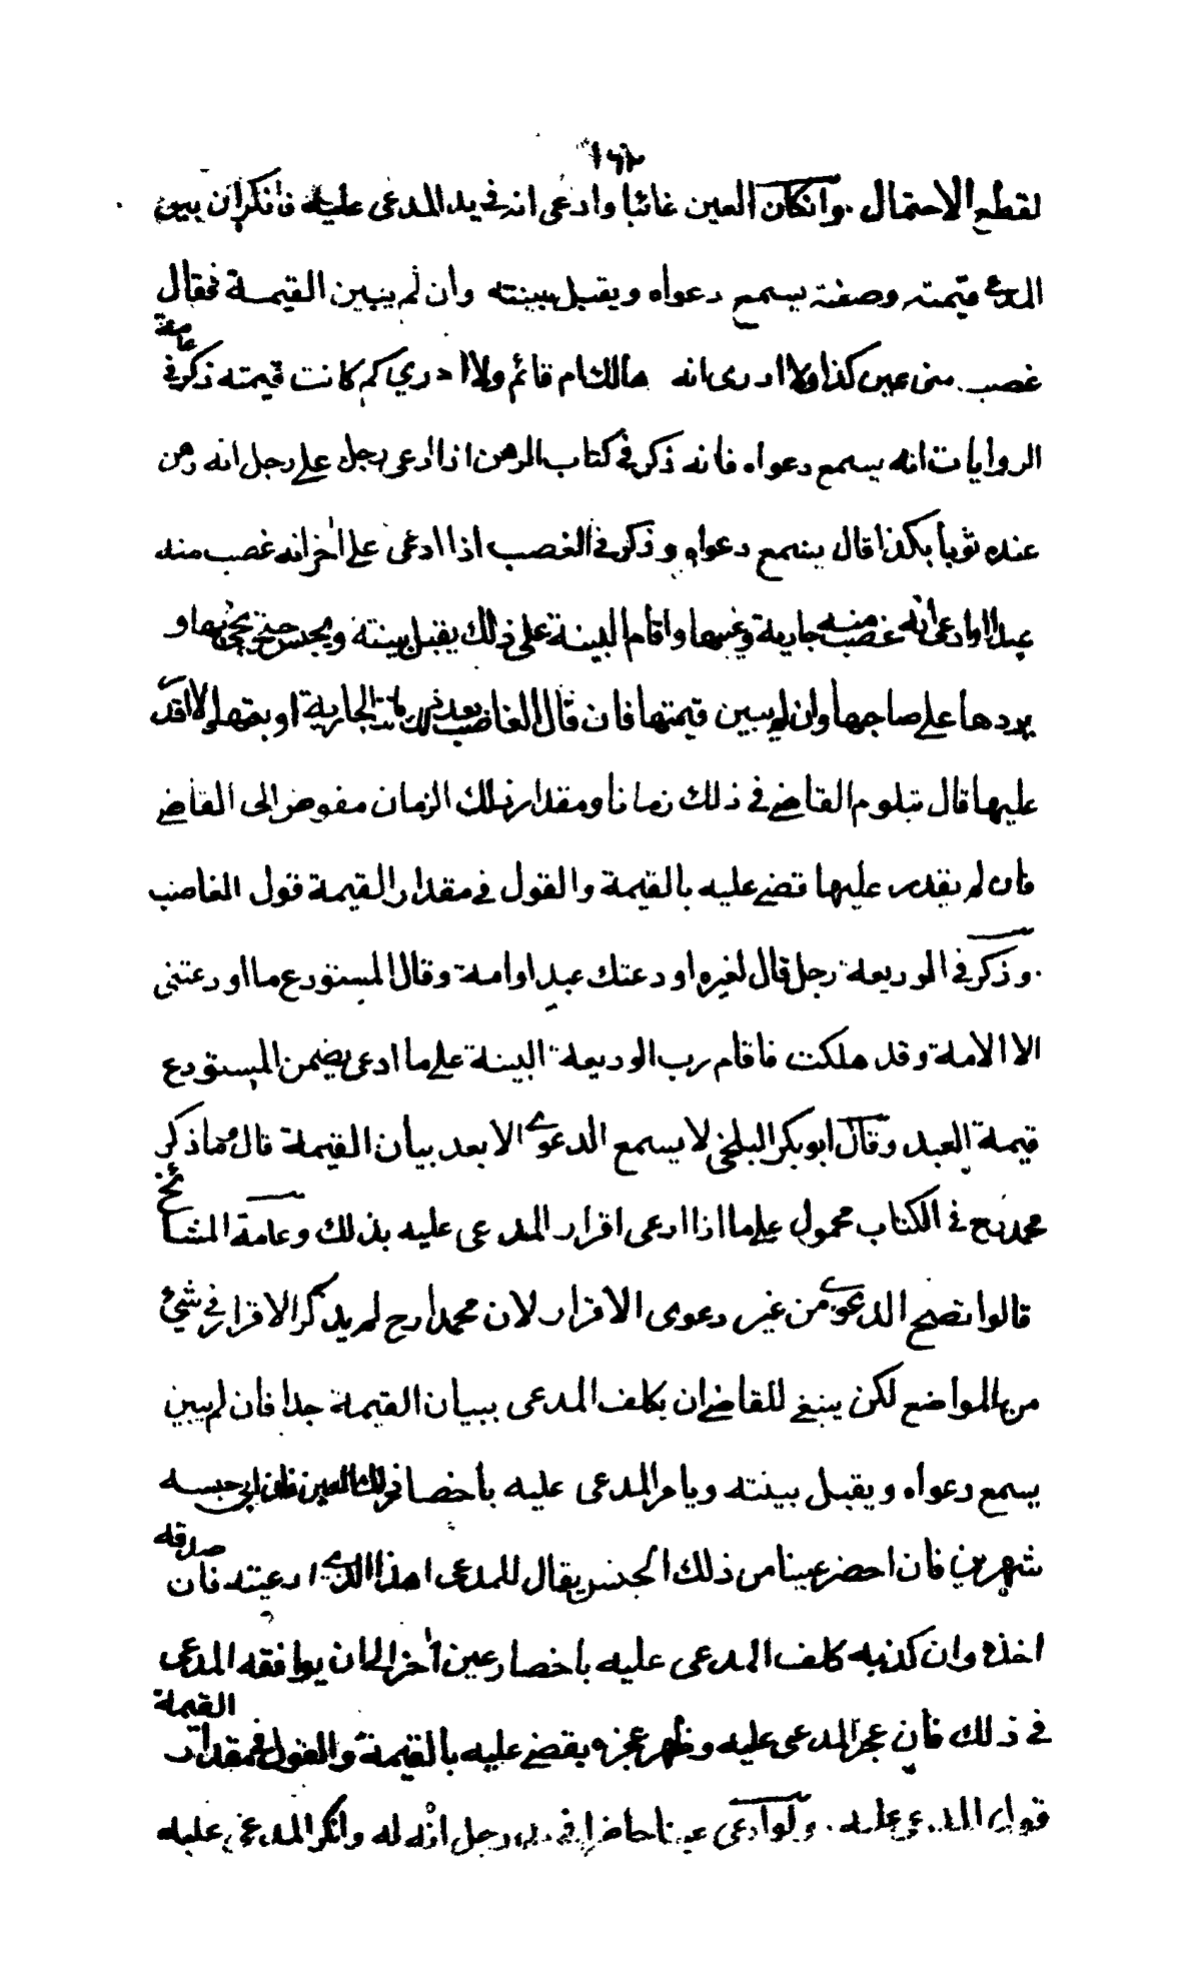 ١٦٢
لقطع الاحتمال . وانكان العين غائبا وادعى انه في يد المدعى عليه فانكر ان بين
المدعي قيمته وصفته يسمع دعواه ويقبل بينته وان لم يبين القيمة فقال
غصب مني عين كذا ولا ادرى انه هالك ام قائم ولا ادري كم كانت قيمته ذكر في عامة
الروايات انه يسمع دعواه فانه ذكر في كتاب الرهن اذا ادعى رجل على رجل انه رهن
عنده ثوبا بكذا قال يسمع دعواه وذكر في الغصب اذا ادعى على اخر انه غصب منه
عبدا او ادعى انه غصب منه جارية وغيبها واقام البينة على ذلك يقبل بينته ويحبس حتى يجئ بها و
يردها على صاحبها وان لم يبين قيمتها فان قال الغاصب بعد ذلك ماتت الجارية او بعتها ولا اقدر
عليها قال يتلوم القاضي في ذلك زمانا ومقدار ذلك الزمان مفوض الى القاضي
فان لم يقدر عليها قضي عليه بالقيمة والقول في مقدار القيمة قول الغاصب
. وذكر في الوديعة رجل قال لغيره اودعتك عبدا وامة وقال المستودع ما اودعتنى
الا الامة وقد هلكت فاقام رب الوديعة البينة على ما ادعى يضمن المستودع
قيمة العبد وقال ابو بكر البلخي لا يسمع الدعوي الا بعد بيان القيمة قال وما ذكر
محمد رح في الكتاب محمول على ما اذا ادعى اقرار المدعى عليه بذلك وعامة المشائخ
قالوا تصح الدعوي من غير دعوى الاقرار لان محمدا رح لم يذكر الاقرار في شئ
من المواضع لكن ينبغي للقاضي ان يكلف المدعى ببيان القيمة جدا فان لم يبين
يسمع دعواه ويقبل بينته ويامر المدعى عليه باحضار ذلك العين فان ابى حبسه
شهرين فان احضر عينا من ذلك الجنس يقال للمدعى اهذا الذي ادعيته فان صدقه
اخذه وان كذبه كلف المدعى عليه باحضار عين اخر الى ان يوافقه المدعى
في ذلك فان عجز المدعى عليه وظهر عجزه يقضي عليه بالقيمة والقول في مقدار القيمة
قول المدعى عليه . ولو ادعى عينا حاضرا في يد رجل انه له وانكر المدعى عليه